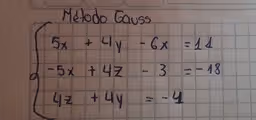 Método Gauss
5x + 4y - 6x = 14
-5x + 4z - 3 = -18
4z + 4y = -4